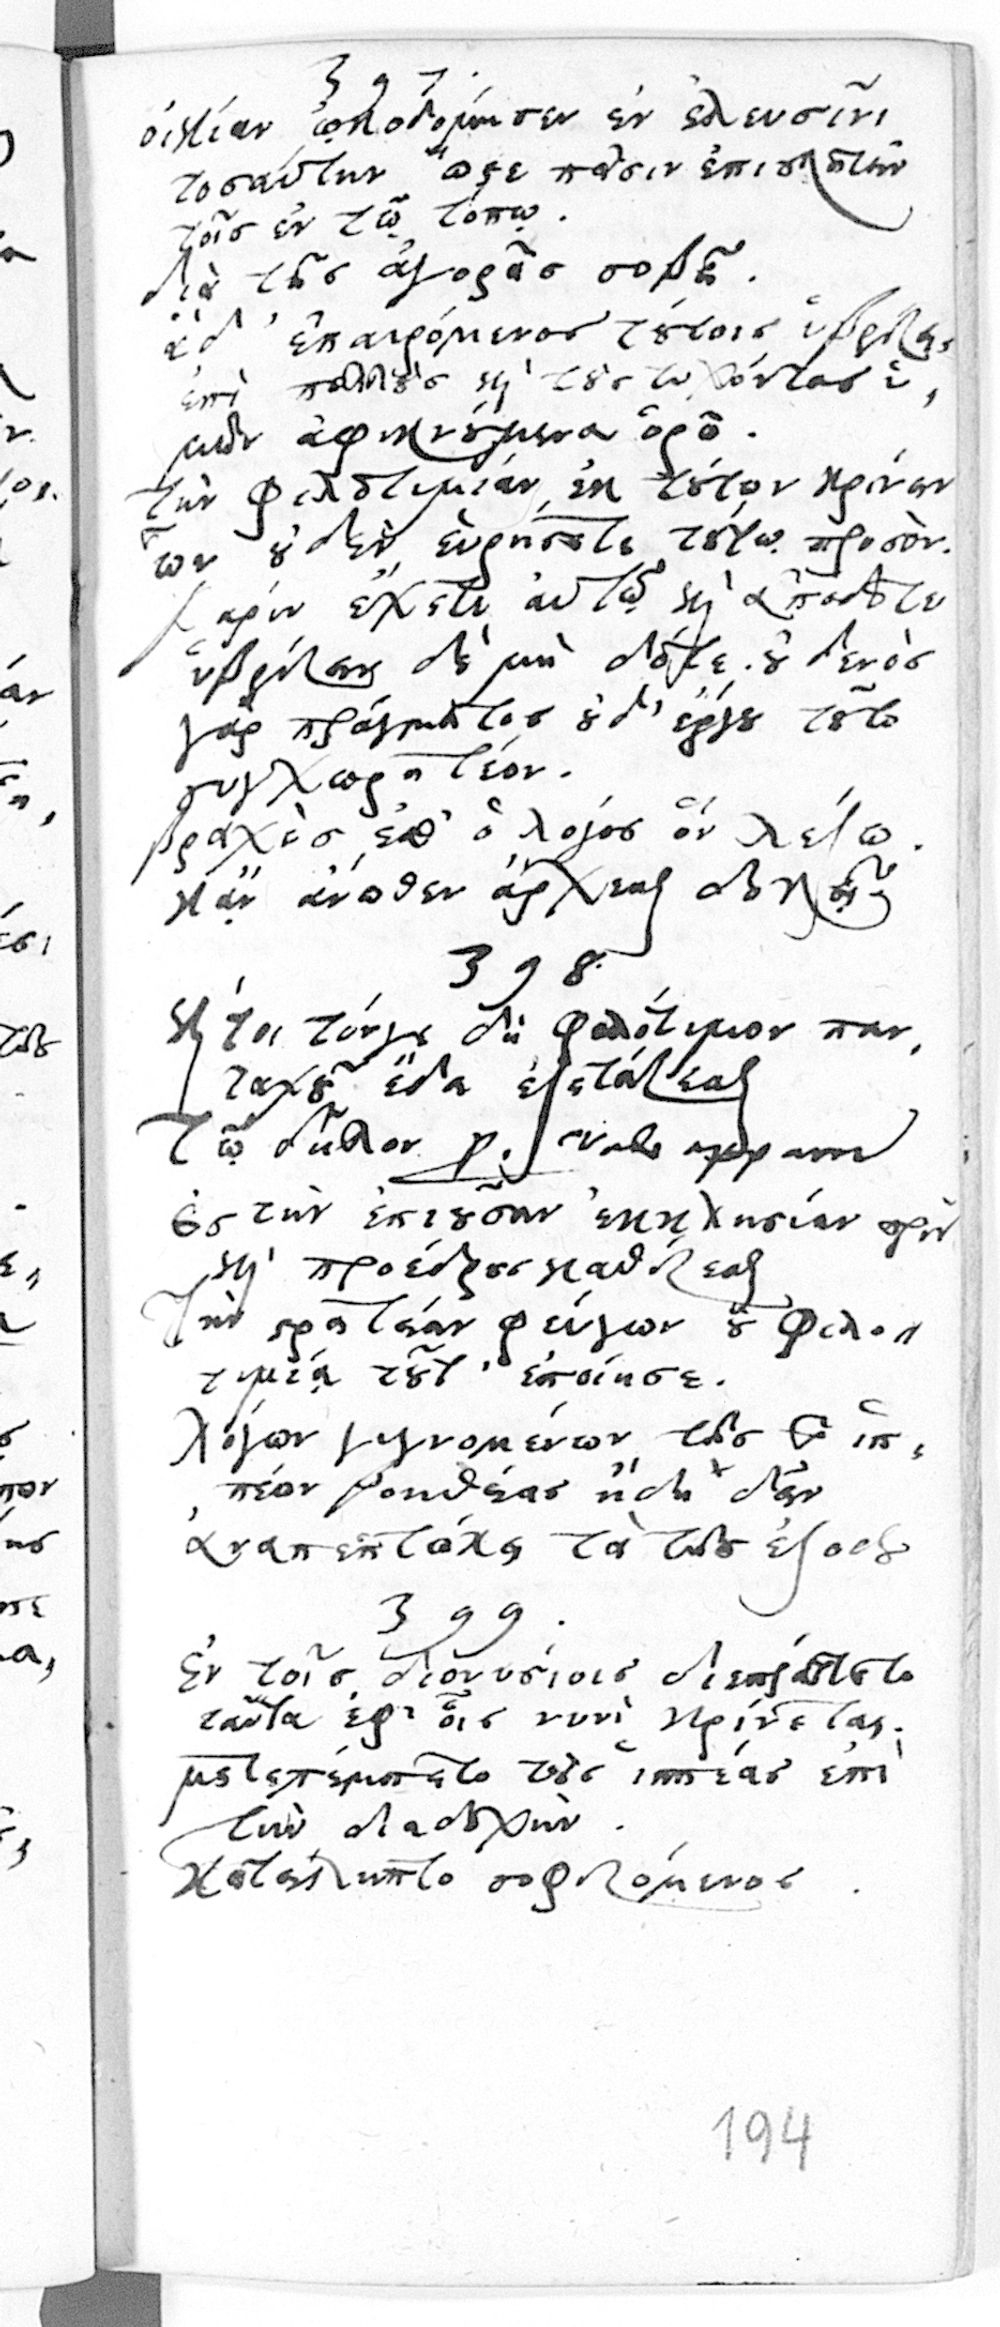 397.
οἰκίαν ᾠκοδόμησεν ἐν ἐλευσῖνι
τοσαύτην ὥστε πᾶσιν ἐπισκοτεῖν
τοῖς ἐν τῷ τόπῳ.
διὰ τῆς ἀγορᾶς σοβεῖ.
ἃ δ' ἐπαιρόμενος τούτοις ὑβρίζει,
ἐπὶ πολλοὺς καὶ τοὺς τυχόντας ἡ,
μῶν ἀφικνούμενα ὁρῶ.
τὴν φιλοτιμίαν ἐκ τούτων κρίνειν
ὧν οὐδὲν εὑρήσετε τούτῳ προσὸν.
χάριν ἔχετε αὐτῷ καὶ ἀπόδοτε
ὑβρίζειν δὲ μὴ δότε. οὐδενὸς
γὰρ πράγματος οὐδ' ἔργου τοῦτο
συγχωρητέον.
βραχὺς ἐσθ' ὁ λόγος ὃν λέξω.
κἂν ἄνωθεν ἄρχεσθαι δοκῇ
398.
καίτοι τόνγε δὴ φιλότιμον παν,
ταχοῦ ἔδει ἐξετάζεσθαι
τῷ δῆλον
ἐς τὴν ἐπιοῦσαν ἐκκλησίαν πρὶν
καὶ προέδρους καθίζεσθαι
τὴν στρατείαν φεύγων οὐ φιλο
τιμίᾳ τοῦτ' ἐποίησε.
λόγων γιγνομένων τῆς τῶν ἱπ,
πέων βοηθείας ἤδη δεῖν
ἀναπεπτώκει τὰ τῆς ἐξόδου
399.
ἐν τοῖς διονυσίοις διεπράττετο
ταῦτα ἐφ' οἷς νυνὶ κρίνεται.
μετεπέμπετο τοὺς ἱππέας ἐπὶ
τὴν διαδοχὴν.
κατείληπτο σοφιζόμενος.
194